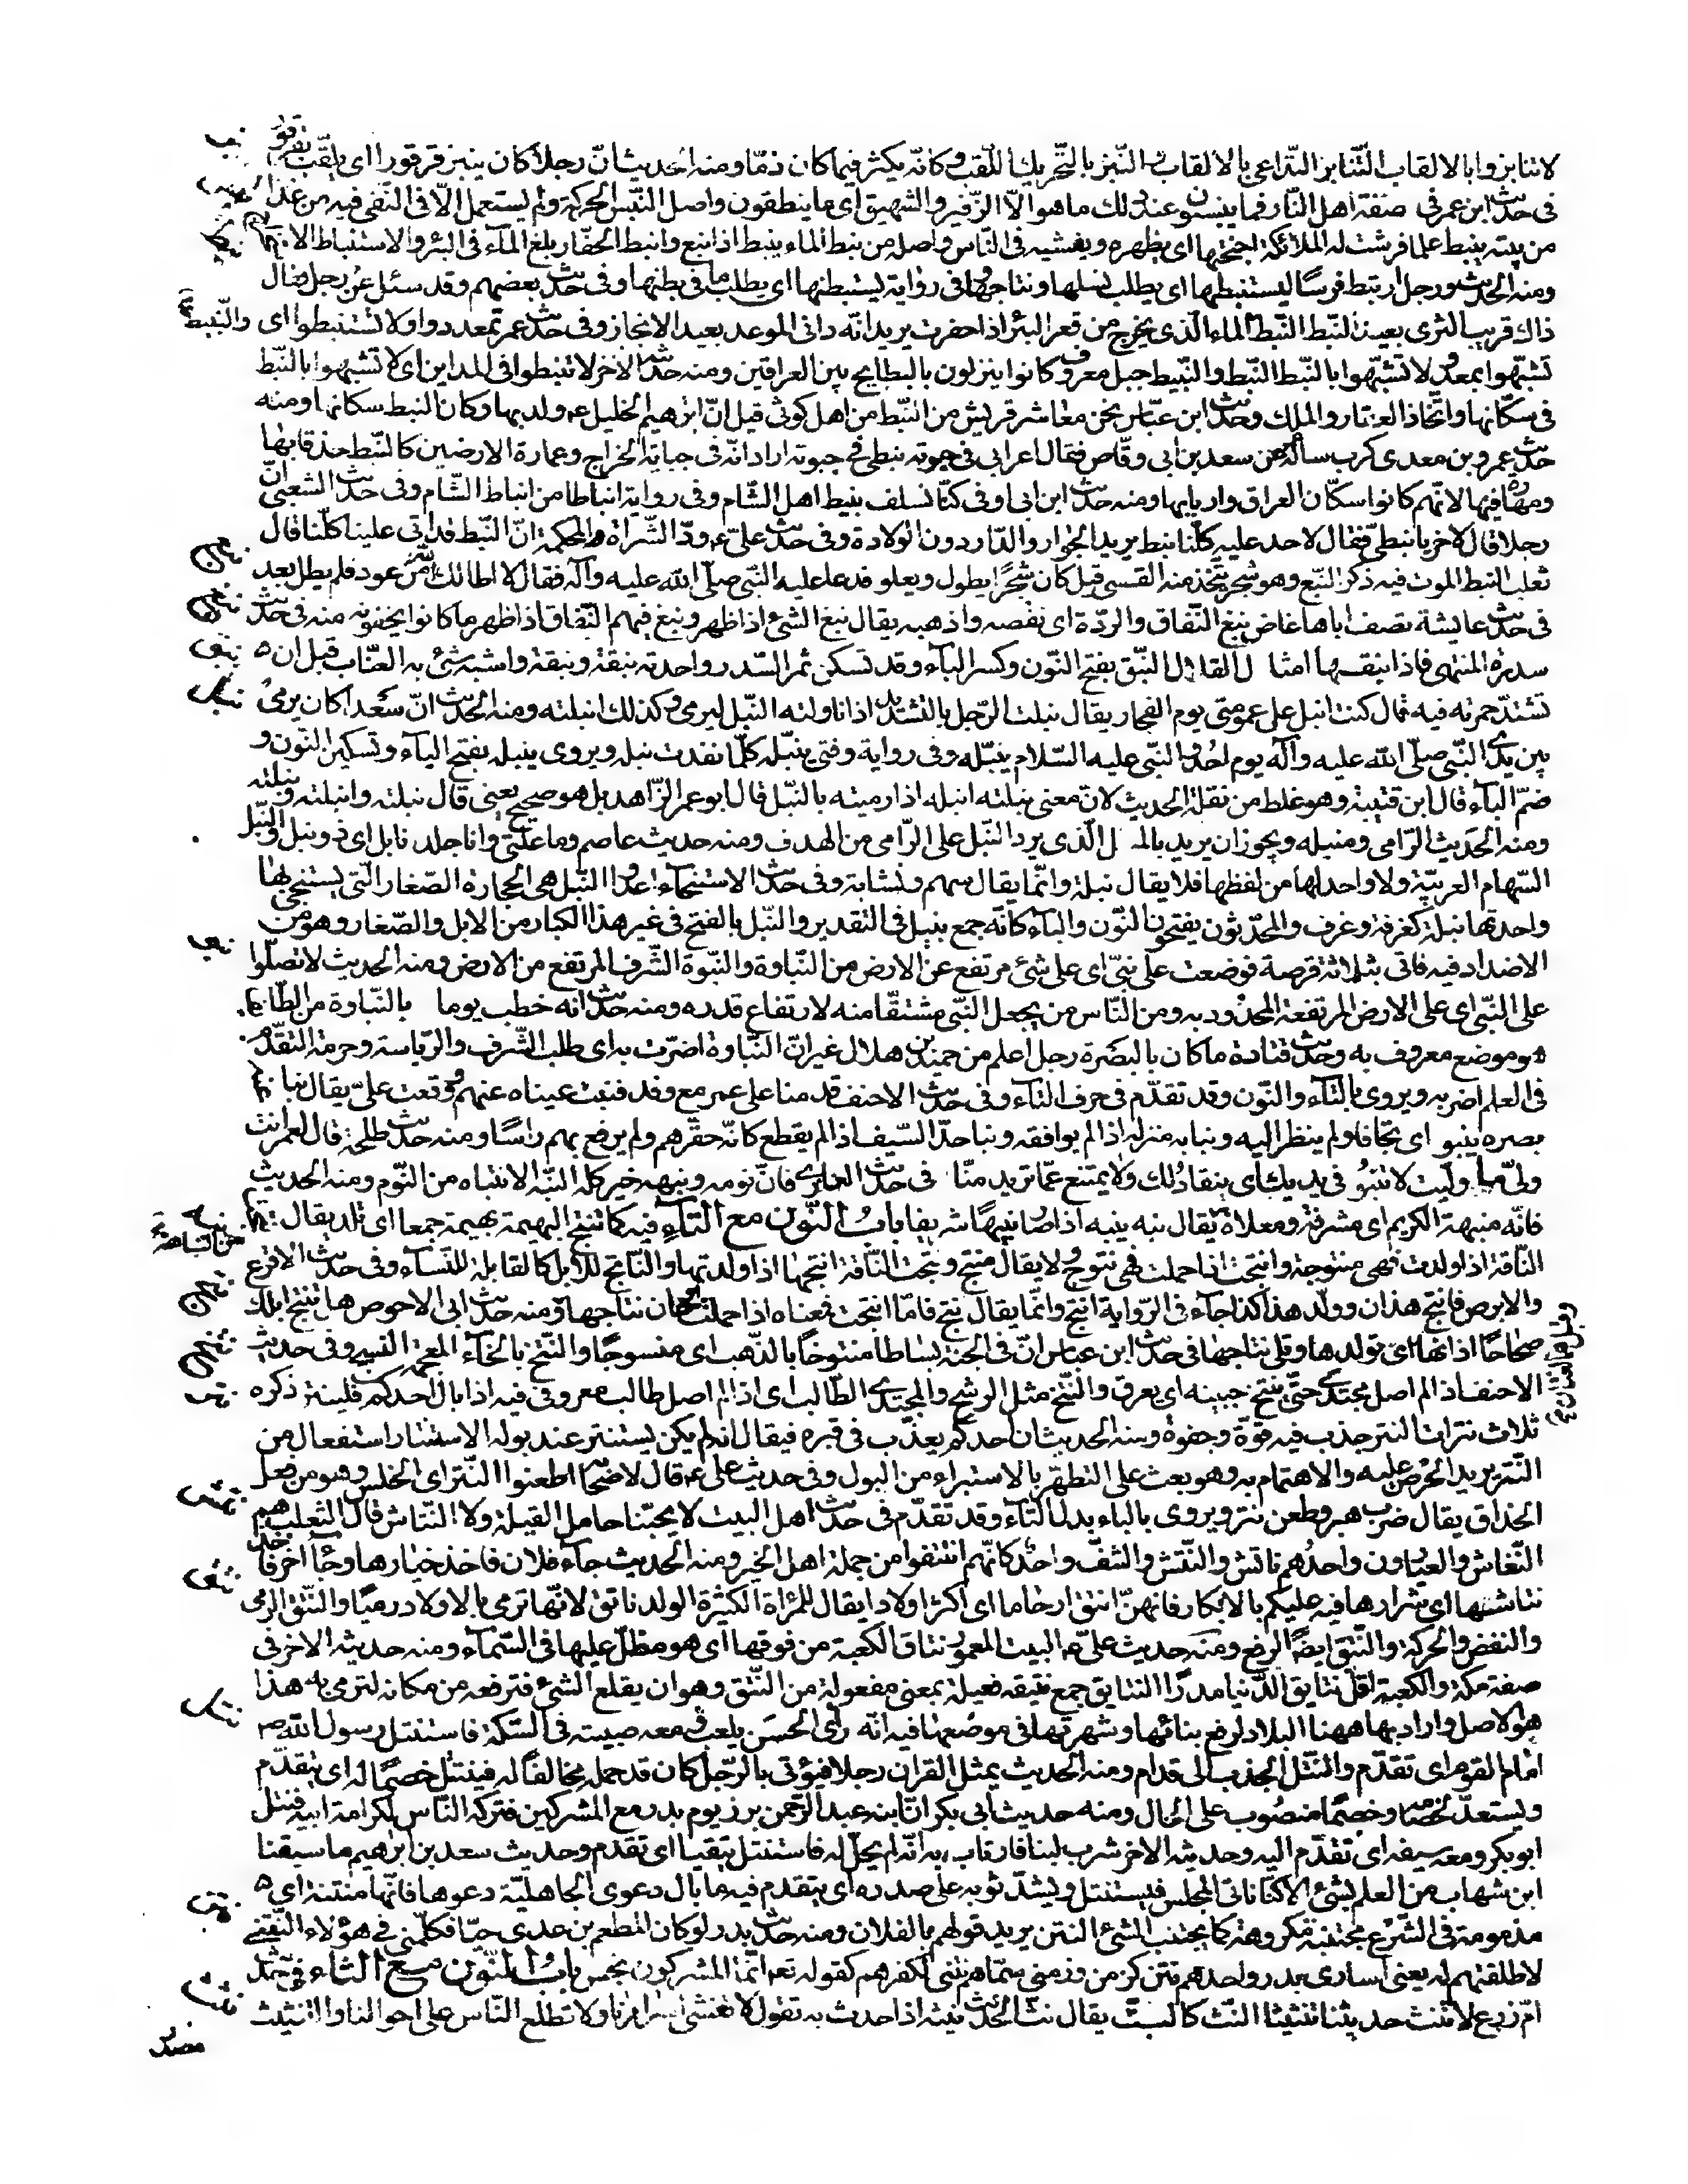 لا تنابزوا بالالقاب التّنابز التّداعى بالالقاب والنّبز بالتّحريك اللّقب وكانّه يكثر فيما كان ذمّا ومنه الحديث انّ رجلا كان ينبز قرقورا اى يلقّب بقرقور
فى حديث ابن عمر فى صفة اهل النّار فما ينبسون عند ذلك ما هو الّا الزّفير والشهيق اى ما ينطقون واصل النّبس الحركة ولم يستعمل الّا فى النّفى فيه من غدا
من بيته ينبط علما فرشت له الملائكة اجنحتها اى يظهره ويفشيه فى النّاس واصله من نبط الماء ينبط اذا نبع وانبط الحفّار بلغ المآء فى البئر والاستنباط الا
ومنه الحديث ورجل ارتبط فرسًا ليستنبطها اى يطلب نسلها ونتاجها وفى رواية ليستبطنها اى يطلب ما فى بطنها وفى حديث بعضهم وقد سئل عن رجل فقال
ذاك قريب الثرى بعيد النّبط النّبط الماء الّذى يخرج من قعر البئر اذا حفرت يريد انّه دانى الموعد بعيد الانجاز وفى حديث عمر تمعددوا ولا تستنبطوا اى
تشبّهوا بمعدّ ولا تشبّهوا بالنّبط النّبط والنّبيط جيل معروف كانوا ينزلون بالبطايح بين العراقين ومنه حديثه الاخر لا تنبطوا فى المداين اى لا تشبهوا بالنّبط
فى سكّانها واتّخاذ العقار والملك وحديث ابن عبّاس نحن معاشر قريش من النّبط من اهل كوثى قيل انّ ابرهيم الخليل ع ولد بها وكان النبط سكانها ومنه
حديث عمرو بن معدى كرب سأله عمر عن سعد بن ابى وقّاص فقال اعرابى فى حبوته نبطى فى جبوته اراد انّه فى جباية الخراج وعمارة الارضين كالنّبط حذقا بها
ومهارة فيها لانّهم كانوا سكّان العراق واربابها ومنه حديث ابن ابى اوفى كنّا نسلف نبيط اهل الشّام وفى رواية انباطا من انباط الشّام وفى حديث الشعبىّ انّ
رجلا قال لاخر يا نبطىّ فقال لا حد عليه كلّنا نبط يريد الجوار والدّار دون الولادة وفى حديث علىّ ع ودّ الشّراة المحكمة انّ النّبط قد اتى علينا كلّنا قال
ثعلب النبط الموت فيه ذكر النّبع وهو شجر يتّخذ منه القسى قيل كان شجرًا يطول ويعلو فدعا عليه النّبى صلّى الله عليه وآله فقال لا اطالك الله من عود فلم يطل بعد
فى حديث عايشة تصف اباها غاض نبغ النّفاق والردّة اى نقصه واذهبه يقال نبغ الشئ اذا ظهر ونبغ فيهم النّفاق اذا ظهر ما كانوا يخفونه منه فى حديث
سدرة المنتهى فاذا نبقها امثال القلال النّبق بفتح النّون وكسر البآء وقد تسكن ثمر السّدر واحدته نبقة ونبقة واشبه شئ به العنّاب قبل ان
تشتدّ حمرته فيه قال كنت انبل على عمومتى يوم الفجار يقال نبلت الرّجل بالتشديد اذا ناولته النّبل ليرمى وكذلك انبلته ومنه الحديث انّ سعدا كان يرمى
بين يدى النّبى صلّى الله عليه وآله يوم احد والنبى عليه السّلام ينبّله وفى رواية وفتى ينبّله كلّما نفدت نبله ويروى ينبله بفتح اليآء وتسكين النّون و
ضمّ البآء قال ابن قتيبة وهو غلط من نقلة الحديث لانّ معنى نبلته انبله اذا رميته بالنّبل قال ابو عمر الزّاهد بل هو صحيح يعنى قال نبلته وانبلته ونبلته
ومنه الحديث الرّامى ومنبله ويجوز ان يريد بالمنبل الّذى يرد النّبل على الرّامى من الهدف ومنه حديث عاصم وما علّتى وانا جلد نابل اى ذو نبل والنّبل
السّهام العربيّة ولا واحد لها من لفظها فلا يقال نبلة وانّما يقال سهم ونشابة وفى حديث الاستنجآء اعدّوا النّبل هى الحجارة الصّغار الّتى يستنجى بها
واحدتها نبلة كغرفة وغرف والمحدّثون يفتحون النّون والباء كانّه جمع نبيل فى التقدير والنّبل بالفتح فى غير هذا الكبار من الابل والصّغار وهو من
الاضداد فيه فاتى بثلاثة قرصة فوضعت على نبىّ اى على شئ مرتفع عن الارض من النّباوة والنّبوة الشّرف المرتفع من الارض ومنه الحديث لا تصلّوا
على النّبى اى على الارض المرتفعة المحدودبه ومن النّاس من يجعل النّبى مشتقّا منه لارتفاع قدره ومنه حديث انه خطب يوما بالنّباوة من الطّائف
هو موضع معروف به وحديث قتادة ما كان بالبصرة رجل اعلم من حميد بن هلال غير انّ النّباوة اضرّت به اى طلب الشّرف والرّياسة وحرمة التقدّم
فى العلم اضر به ويروى بالتآء والنّون وقد تقدّم فى حرف التآء وفى حديث الاحنف قدمنا على عمر مع وفد فنبت عيناه عنهم ووقعت علىّ يقال نبا
بصره ينبو اى تجافا ولم ينظر اليه ونبا به منزله اذا لم يوافقه ونبا حدّ السّيف اذا لم يقطع كانّه حقّرهم ولم يرفع بهم راسًا ومنه حديث طلحة قال لعمر انت
ولىّ ما وليت لا ننبو فى يديك اى ننقاد لك ولا يمتنع عمّا تريد منّا فى حديث الغازى فانّ نومه ونبهه خير كله النّبه الانتباه من النّوم ومنه الحديث
فانّه منبهة الكريم اى مشرفة ومعلاة يقال نبه ينبه اذا صار نبيهًا شريفا باب النّون مع التّآء فيه كما تنتج البهيمة بهيمة جمعا اى تلد يقال
النّاقة اذا ولدت فهى منتوجة وانتجت اذا حملت فهى نتوج ولا يقال منتج ونتجت النّاقة انتجها اذا ولدتها والنّاتج للابل كالقابلة للنّسآء وفى حديث الاقرع
والابرص فانتج هذان وولّد هذا كذا جآء فى الرّواية انتج وانّما يقال نتج فامّا انتجت فمعناه اذا حملت او حان نتاجها ومنه حديث ابى الاحوص هل تنتج ابلك
صحاحًا اذانها اى تولدها وتلى نتاجها فى حديث ابن عباس انّ فى الجنة بساطا منتوخًا بالذّهب اى منسوجًا والنّتخ بالخآء المعجمة النّسج وفى حديث
الاحنف اذا لم اصل مجتدىّ حتّى ينتح جبينه اى يعرق والنّتح مثل الرشح والمجتدى الطّالب اى اذا لم اصل طالب معروفى فيه اذا بال احدكم فلينتر ذكره
ثلاث نترات النتر جذب فيه قوّة وجفوة ومنه الحديث ان احدكم يعذّب فى قبره فيقال انّه لم يكن يستنتر عند بوله الاستنتار استفعال من
النّتر يريد الحرص عليه والاهتمام به وهو بعث على التطهّر بالاستبراء من البول وفى حديث على ع قال لاصحابه اطعنوا النّتر اى الخلس وهو من فعل
الحذاق يقال ضرب هبر وطعن نتر ويروى بالباء بدل التآء وقد تقدّم فى حديث اهل البيت لا يحبّنا حامل القيلة ولا النّتاش قال الثعلب هم
النّغاش والعيارون واحدهم ناتش والنّتش والنتف واحد كانّهم انتتفوا من جملة اهل الخير ومنه الحديث جآء فلان فاخذ خيارها وجآء اخر فاخذ
نتاشها اى شرارها فيه عليكم بالابكار فانهنّ انتق ارحاما اى اكثر اولادا يقال للمرأة الكثيرة الولد ناتق لانّها ترمى بالاولاد رميًا والنّتق الرمى
والنفض والحركة والنّتق ايضًا الرفع ومنه حديث علىّ ع البيت المعمور نتاق الكعبة من فوقها اى هو مظلّ عليها فى السّمآء ومنه حديثه الاخر فى
صفة مكّة والكعبة اقلّ نتايق الدّنيا مدرًا النتايق جمع نتيقه فعيلة بمعنى مفعولة من النّتق وهو ان يقلع الشئ فترفعه من مكانه لترمى به هذا
هو الاصل واراد بها ههنا البلاد لرفع بنائها وشهرتها فى موضعها فيه انّه رأى الحسن يلعب ومعه صبية فى السّكّة فاستنتل رسول الله ص
امام القوم اى تقدّم والنّتل الجذب الى قدام ومنه الحديث يمثل القران رجلا فيؤتى بالرّجل كان قد حمله مخالفًا له فينتتل خصمًا له اى يتقدّم
ويستعدّ لخصامه وخصمًا منصوب على الحال ومنه حديث ابى بكر انّ ابنه عبد الرّحمن برز يوم بدر مع المشركين فتركه النّاس لكرامة ابيه فنتل
ابو بكر ومعه سيفه اى تقدّم اليه وحديثه الاخر شرب لبنا فارتاب به انّه لم يحلّ له فاستنتل يتقيّا اى تقدّم وحديث سعد بن ابرهيم ما سبقنا
ابن شهاب من العلم بشئ الا كنّا ناتى المجلس فيستنتل ويشدّ ثوبه على صدره اى يتقدم فيه ما بال دعوى الجاهليّة دعوها فانّها منتنة اى
مذمومة فى الشّرع مجتنبة مكروهة كما يجتنب الشئ النتن يريد قولهم يا لفلان ومنه حديث بدر لو كان المطعم بن عدى حيّا فكلّمنى فى هؤلاء النّتنى
لاطلقتهم له يعنى اسارى بدر واحدهم نتن كزمن وزمنى سمّاهم نتنى لكفرهم كقوله تعه انّما المشركون نجس باب النّون مع الثّاء فى حديث
امّ زرع لا تنث حديثنا تنثيثا النث كالبث يقال نثّ الحديث ينثه اذا حدث به تقول لا تفشى اسرارنا ولا تطلع النّاس على احوالنا والتنثيث
مصدر